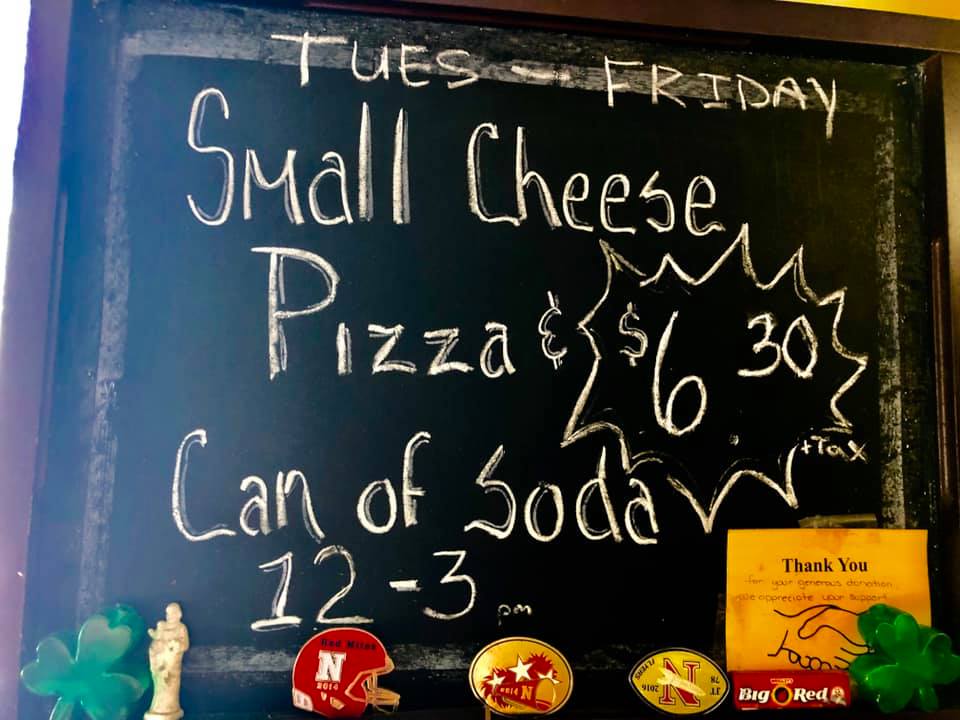 TUES - FRIDAY
Small Cheese
Pizza & $6.30
+Tax
Can of Soda
12-3 pm
Thank You
for your generous donation.
We appreciate your support
Red Nites
N
2014
2014 N
FLYERS
N
2016
JT 78
Big Red